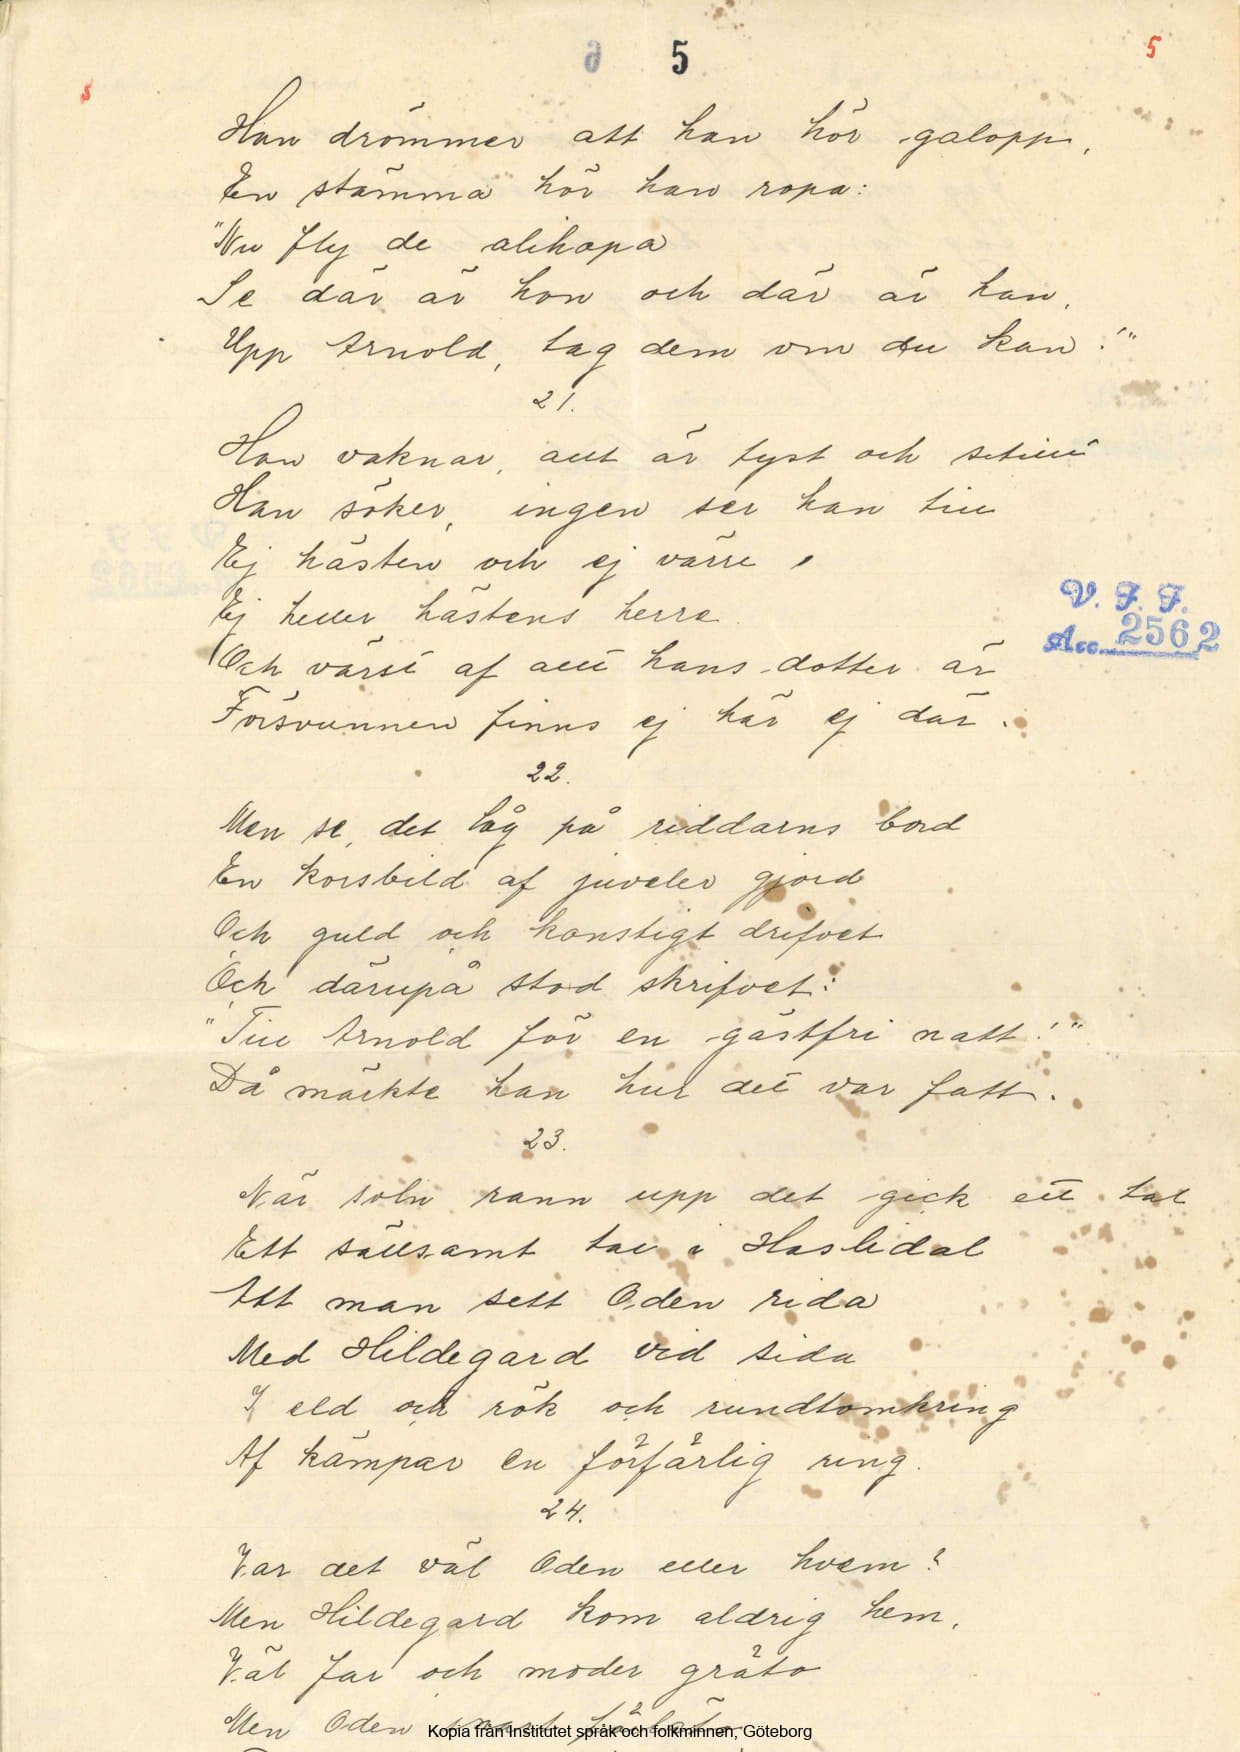 5
5
5
Han drömmer att han hör galopp,
En stämma hör han ropa:
"Nu fly de alihopa
Se där är hon och där är han,
Upp Arnold, tag dem om du kan!"
21.
Han vaknar, allt är tyst och still
Han söker, ingen ser han till
Ej hästen och ej värre,
Ej heller hästens herre
Och värst af allt hans dotter är
Försvunnen finns ej här ej där.
V. F. F.
Acc. 2562
22.
Men se, det låg på riddarns bord
En korsbild af juveler gjord
Och guld och konstigt drifvet
Och därupå stod skrifvet:
"Till Arnold för en gästfri natt!"
Då märkte han hur det var fatt.
23.
När soln rann upp det gick ett tal
Ett sällsamt tal i Haslidal
Att man sett Oden rida
Med Hildegard vid sida
I eld och rök och rundtomkring
Af kämpar en förfärlig ring.
24.
Var det väl Oden eller hvem?
Men Hildegard kom aldrig hem,
Väl far och moder gräto
Men Oden
Kopia från Institutet språk och folkminnen, Göteborg